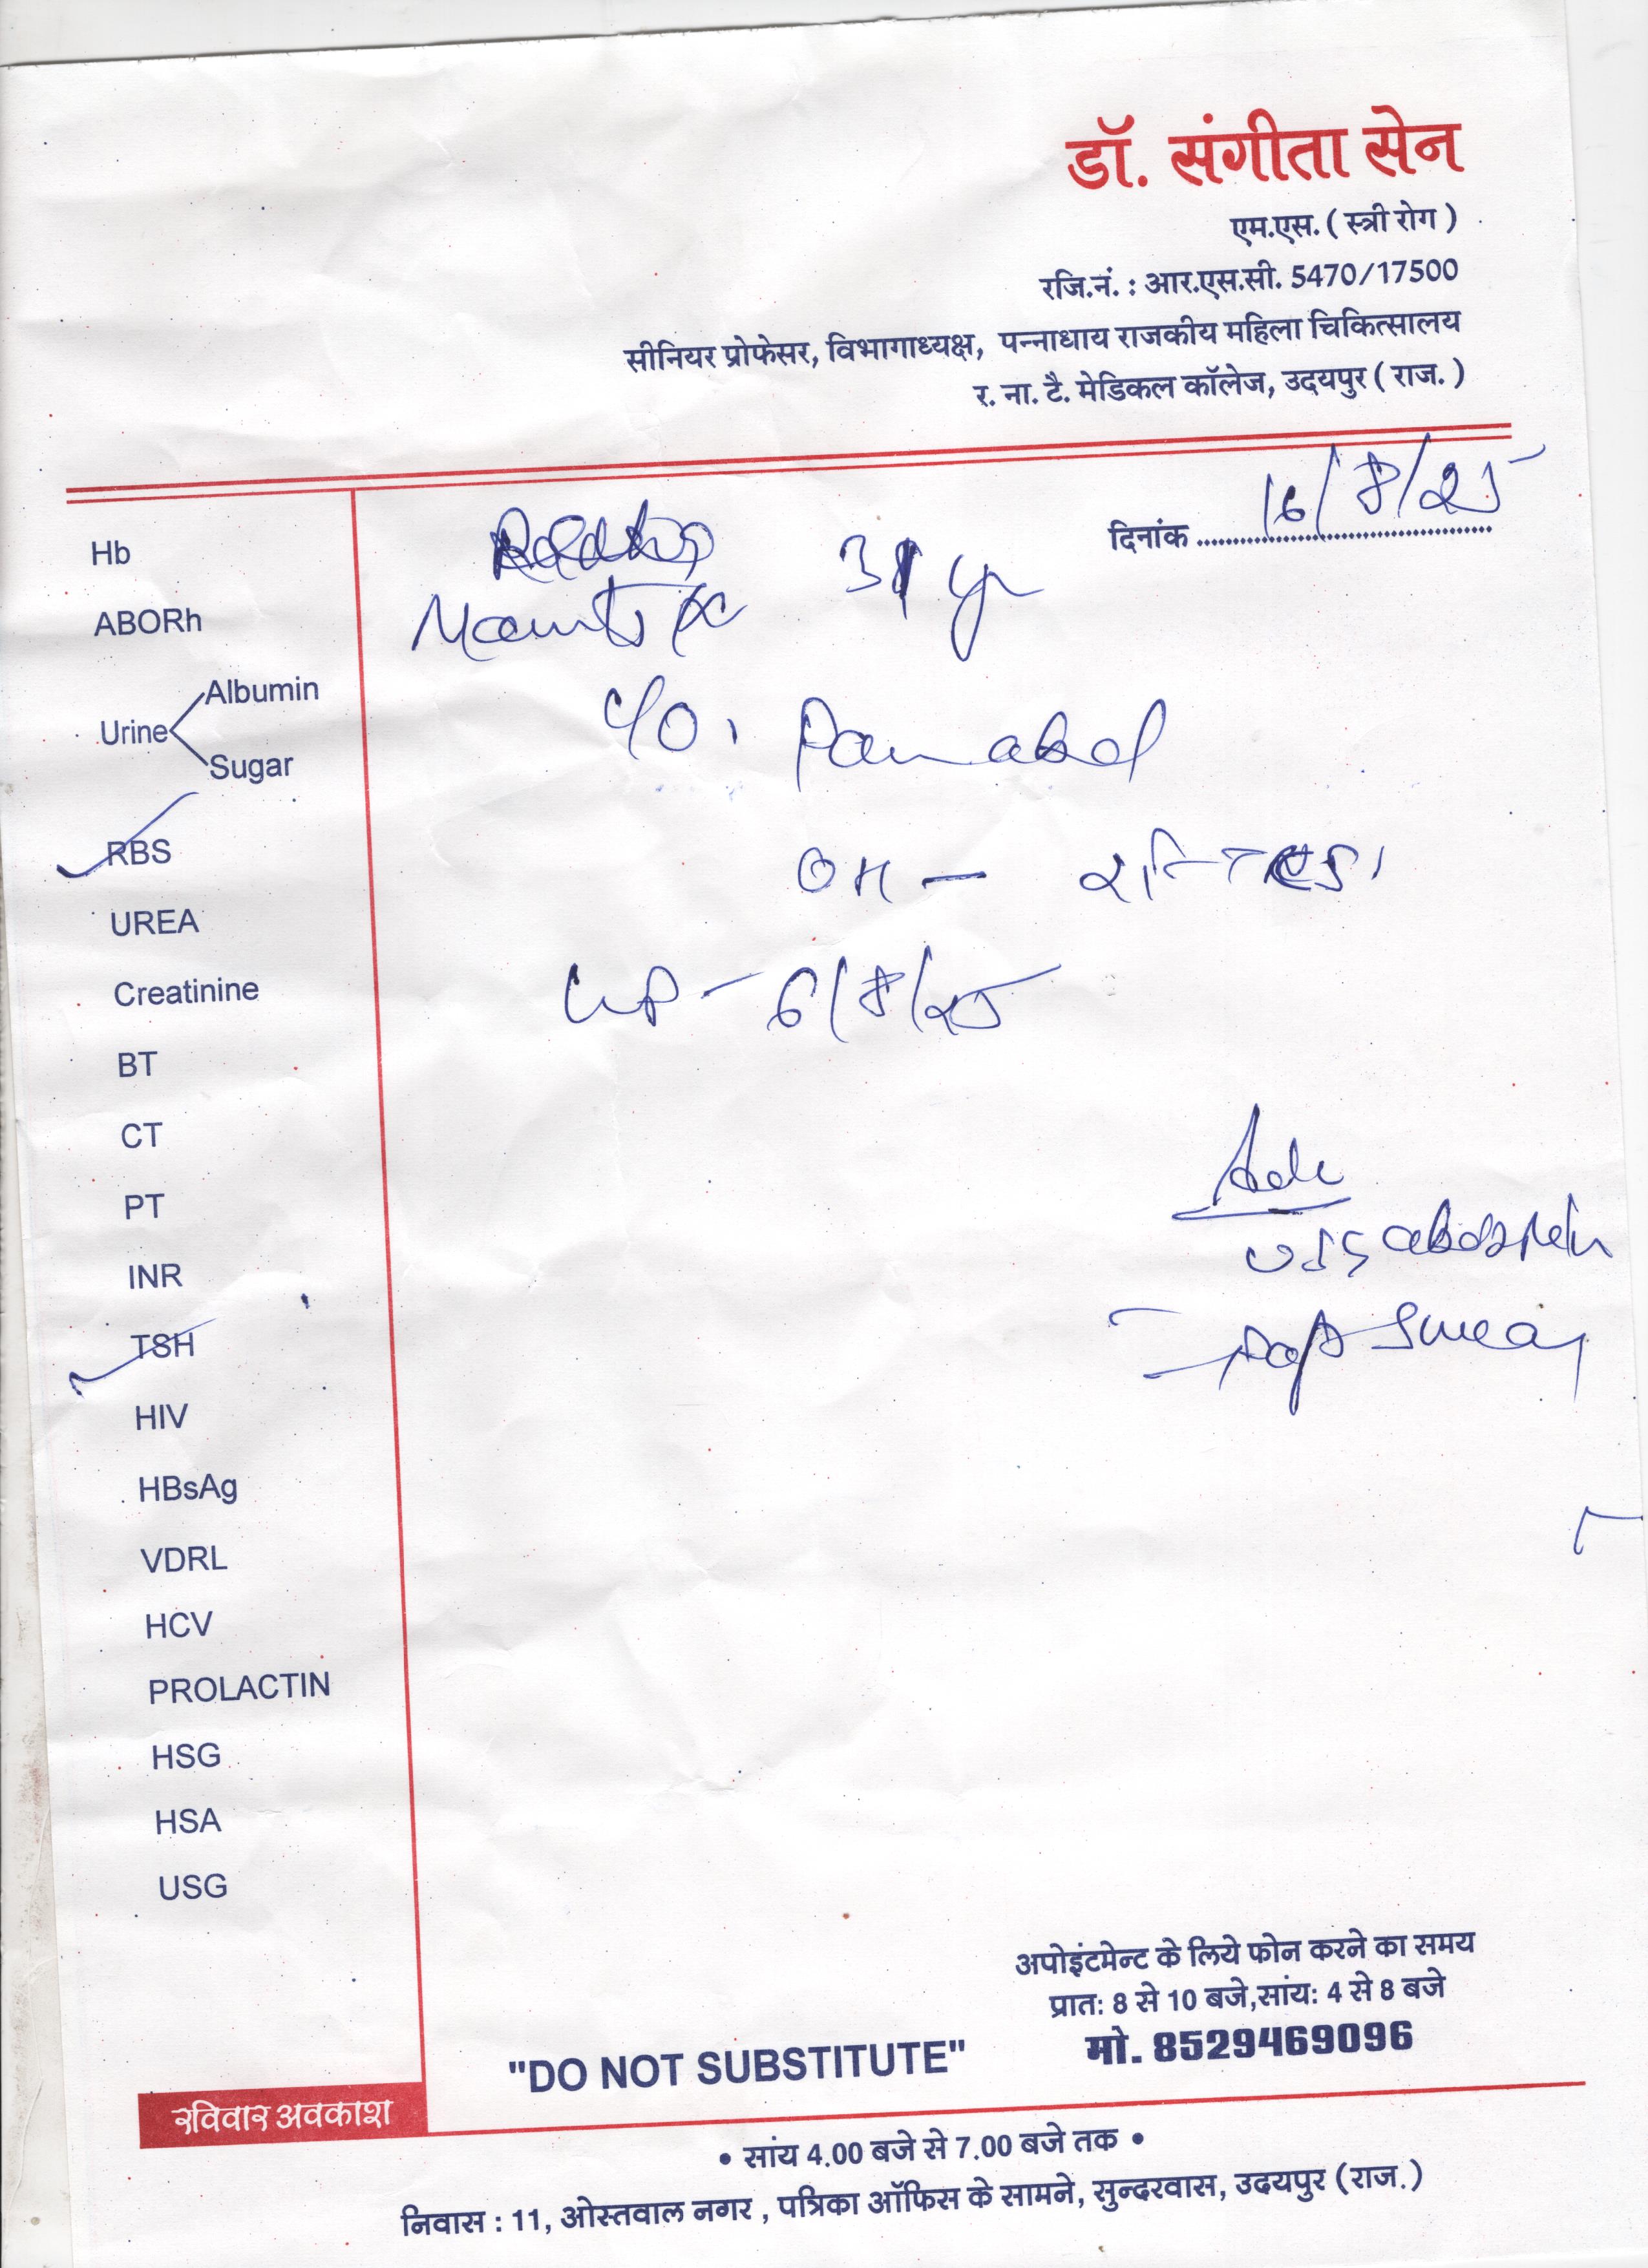 डॉ. संगीता सेन
एम.एस. ( स्त्री रोग )
रजि.नं. : आर.एस.सी. 5470/17500
सीनियर प्रोफेसर, विभागाध्यक्ष, पन्नाधाय राजकीय महिला चिकित्सालय
र. ना. टै. मेडिकल कॉलेज, उदयपुर ( राज. )
दिनांक 16/8/25
31 yr
C/O. Pain abd
OH –
LMP – 6/8/25
Adv
USG abd & pelv
– Pap Smear
Hb
ABORh
Urine
Albumin
Sugar
RBS
UREA
Creatinine
BT
CT
PT
INR
TSH
HIV
HBsAg
VDRL
HCV
PROLACTIN
HSG
HSA
USG
अपोइंटमेन्ट के लिये फोन करने का समय
प्रात: 8 से 10 बजे,सांय: 4 से 8 बजे
मो. 8529469096
"DO NOT SUBSTITUTE"
रविवार अवकाश
• सांय 4.00 बजे से 7.00 बजे तक •
निवास : 11, ओस्तवाल नगर , पत्रिका ऑफिस के सामने, सुन्दरवास, उदयपुर (राज.)